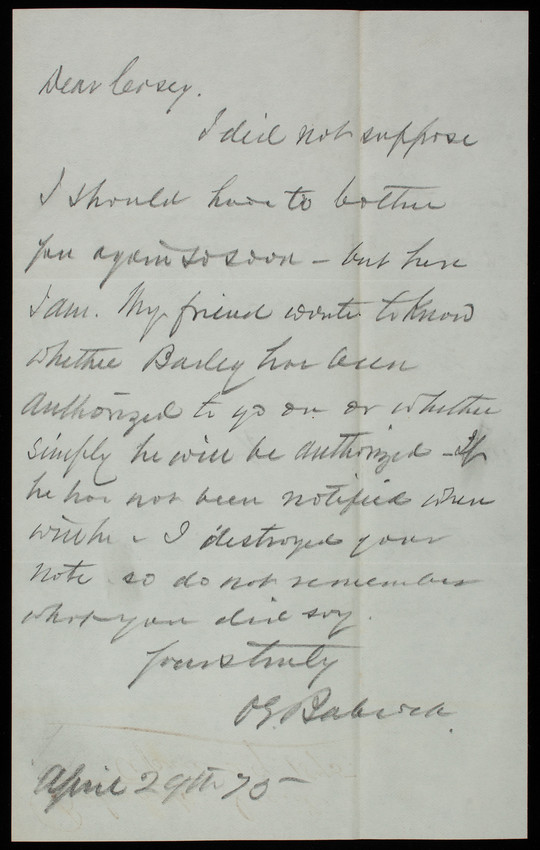 Dear Casey.
I did not suppose
I should have to bother
you again so soon – but here
I am. My friend wants to know
whether Bailey has been
authorized to go on or whether
simply he will be authorized – If
he has not been notified when
will he – I destroyed your
note so do not remember
what you did say.
Yours truly
O.E. Babcock.
April 29th 75